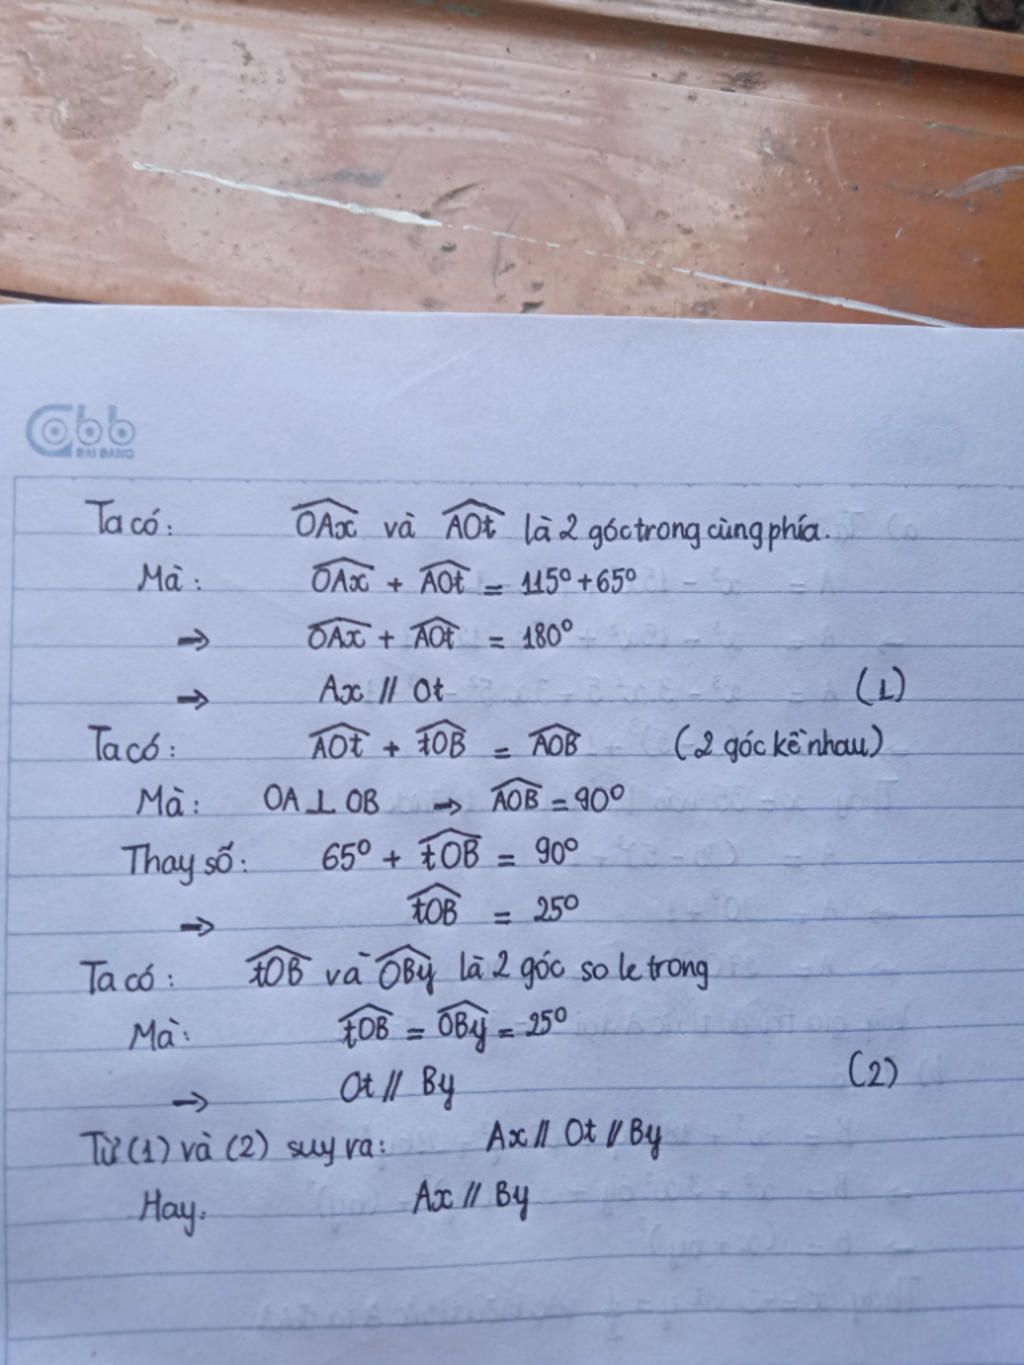 abb
ĐẠI BÀNG
Ta có: $\widehat{OAx}$ và $\widehat{AOt}$ là 2 góc trong cùng phía.
Mà: $\widehat{OAx}$ + $\widehat{AOt}$ = 115° + 65°
⇒ $\widehat{OAx}$ + $\widehat{AOt}$ = 180°
⇒ Ax // Ot (1)
Ta có: $\widehat{AOt}$ + $\widehat{tOB}$ = $\widehat{AOB}$ (2 góc kề nhau)
Mà: OA ⊥ OB → $\widehat{AOB}$ = 90°
Thay số: 65° + $\widehat{tOB}$ = 90°
⇒ $\widehat{tOB}$ = 25°
Ta có: $\widehat{tOB}$ và $\widehat{OBy}$ là 2 góc so le trong
Mà: $\widehat{tOB}$ = $\widehat{OBy}$ = 25°
⇒ Ot // By (2)
Từ (1) và (2) suy ra: Ax // Ot // By
Hay: Ax // By